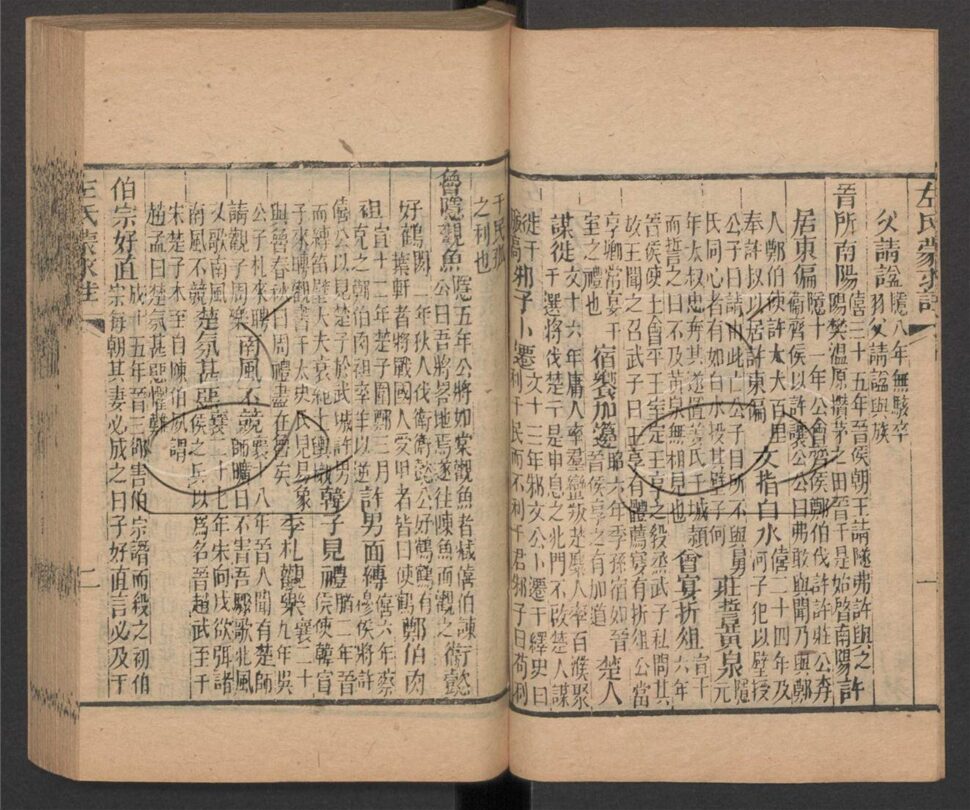 左氏蒙求註 一
父請諡 隱八年無駭卒
羽父請諡與族
晉所南陽 僖二十五年晉侯朝王請隧弗許與之
陽樊溫原攢茅之田晉于是始啓南陽 許
居東偏 隱十一年公會齊侯鄭伯伐許許莊公奔
衞齊侯以許讓公公曰弗敢與聞乃與鄭
人鄭伯使許大夫百里
奉許叔以居許東偏 文指白水 僖二十四年及
河子犯以璧授
公子曰請由此亡公子曰所不與舅
氏同心者有如白水投其璧于河 莊誓黃泉 隱
元
年太叔出奔共遂寘姜氏于城潁
而誓之曰不及黃泉無相見也 會宴折俎 宣十
六年
晉侯使士會平王室定王享之殽烝武子私問其
故王聞之召武子曰王享有體薦宴有折俎公當
享卿當宴王
室之禮也 宿饗加籩 昭六年季孫宿如晉
晉侯享之有加籩 楚人
謀徙 文十六年庸人率羣蠻叛楚麇人率百濮聚
于選將伐楚于是申息之北門不啟楚人謀
徙于
阪高 邾子卜遷 文十三年邾文公卜遷于繹史曰
利于民而不利于君邾子曰苟利
于民孤
之利也
魯隱觀魚 隱五年公將如棠觀魚者臧僖伯諫
公曰吾將略地焉遂往陳魚而觀之 衞懿
好鶴 閔二年狄人伐衞衞懿公好鶴鶴有
乘軒者將戰國人受甲者皆曰使鶴 鄭伯肉
袒 宣十二年楚子圍鄭三月
克之鄭伯肉袒牽羊以逆 許男面縛 僖六年蔡
穆侯將許
僖公以見楚子於武城許男
而縛銜璧大夫衰絰士輿櫬 韓子見禮 昭二年晉
侯使韓宣
子來聘觀書于太史氏見易象
與魯春秋曰周禮盡在魯矣 季札觀樂 襄二十
九年吳
公子札來聘
請觀于周樂 南風不競 襄十八年晉人聞有楚師
師曠曰不害吾驟歌北風
又歌南風
南風不競 楚氛甚惡 襄二十七年宋向戌欲弭諸
侯之兵以爲名晉趙武至于
宋楚子木至自陳伯夙謂
趙孟曰楚氛甚惡懼難
伯宗好直 成十五年晉三郤害伯宗譖而殺之初伯
宗每朝其妻必戒之曰子好直言必及于
左氏蒙求註 二